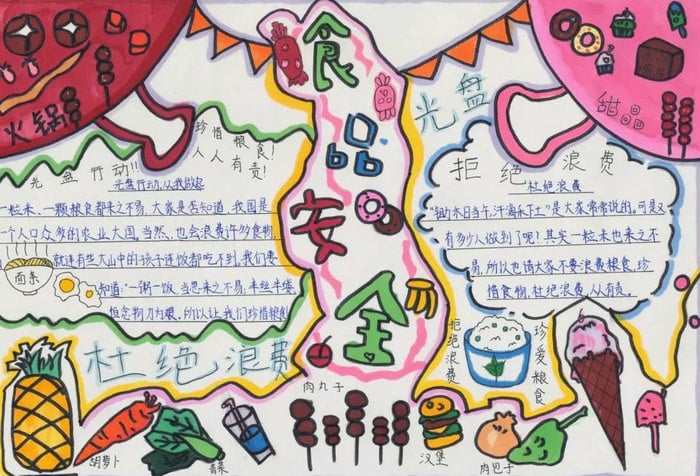 火锅
食品安全
光盘
甜品
珍惜粮食!
人人有责!
光盘行动!!
光盘行动,从我做起
一粒米、一颗粮食都来之不易,大家是否知道,我国是
一个人口众多的农业大国。当然,也会浪费许多食物,
就连有些大山中的孩子连饭都吃不到。我们要
知道:“一锅一饭,当思来之不易,半丝半缕,
恒念物力为艰,所以让我们珍惜粮食
面条
杜绝浪费
拒绝浪费
杜绝浪费
“锄禾日当午,汗滴禾下土”是大家常常说的。可是又
有多少人做到了呢?其实一粒米也来之不
易,所以也请大家不要浪费粮食,珍
惜食物,杜绝浪费,从有责。
拒绝浪费
珍爱粮食
肉丸子
胡萝卜
青菜
汉堡
肉包子